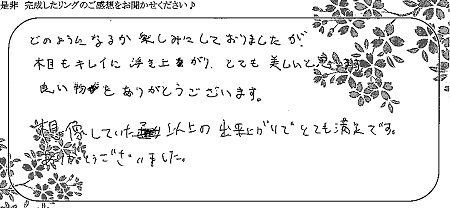 是非 完成したリングのご感想をお聞かせください♪
どのようになるか楽しみにしておりましたが、
木目もキレイに浮き上がり、とても美しいと思います。
良い物をありがとうございます。
想像していた以上の出来上がりでとても満足です。
ありがとうございました。